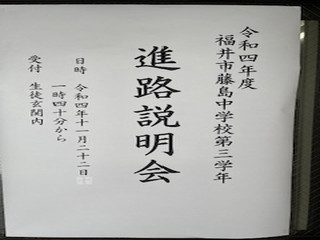 令和四年度
福井市藤島中学校第三学年
進路説明会
日時 令和四年十一月二十二日
一時四十分から
受付 生徒玄関内